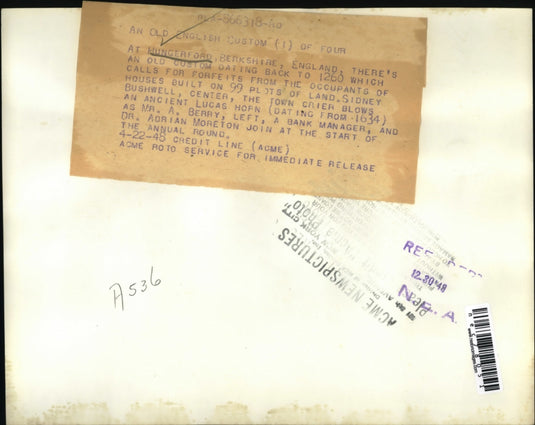 AN OLD ENGLISH CUSTOM (1) OF FOUR
AT HUNGERFORD, BERKSHIRE, ENGLAND, THERE'S
AN OLD CUSTOM DATING BACK TO 1260 WHICH
CALLS FOR FORFEITS FROM THE OCCUPANTS OF
HOUSES BUILT ON 99 PLOTS OF LAND. SIDNEY
BUSHWELL, CENTER, THE TOWN CRIER BLOWS
AN ANCIENT LUCAS HORN (DATING FROM 1634)
AS MR. A. BERRY, LEFT, A BANK MANAGER, AND
DR. ADRIAN MORETON JOIN AT THE START OF
THE ANNUAL ROUND.
4-22-48 CREDIT LINE (ACME)
ACME ROTO SERVICE FOR IMMEDIATE RELEASE
ACME NEWSPICTURES
12.30 48
N.E.A.
A536